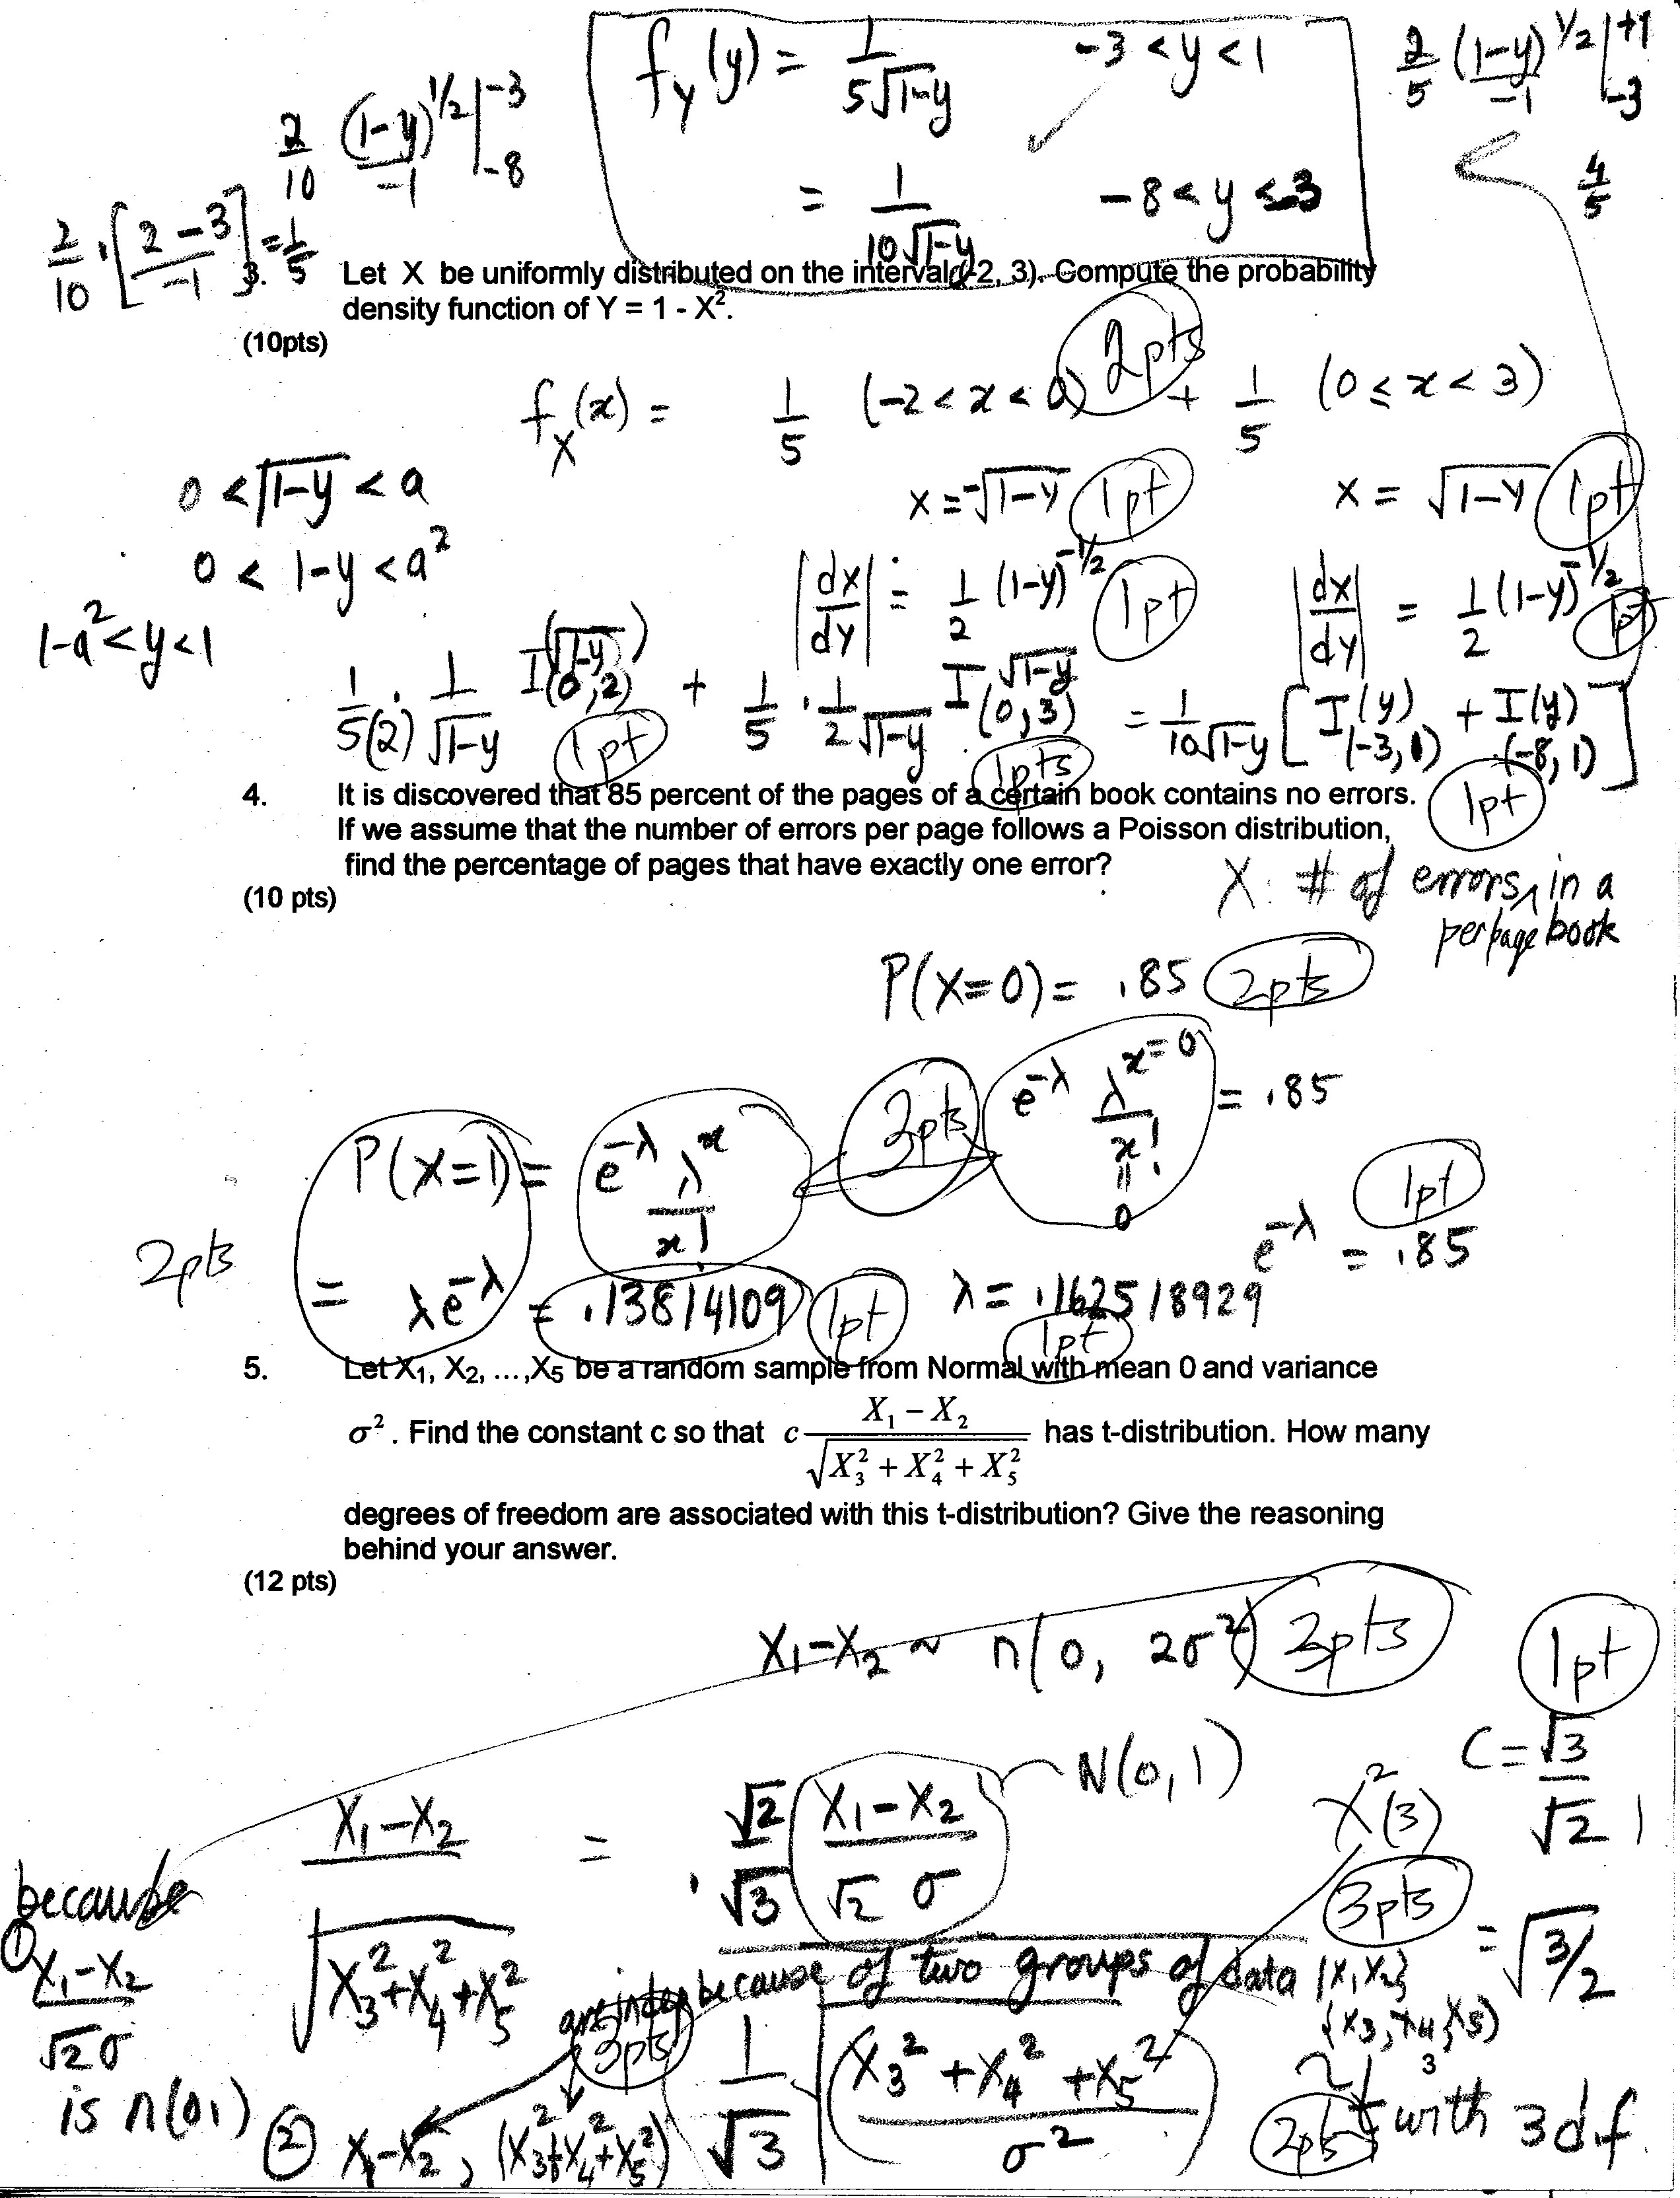 f_Y(y) = 1/(5√(1-y))   -3 < y < 1
= 1/(10√(1-y))   -8 < y ≤ -3
2/10 (1-y)^{1/2}/-1 |^{-3}_{-8}
2/5 (1-y)^{1/2}/-1 |^{+1}_{-3}
4/5
2/10 · [2-3/-1] = 1/5
3. Let X be uniformly distributed on the interval (-2, 3). Compute the probability
density function of Y = 1 - X².
(10pts)
2pts
f_X(x) = 1/5 (-2 < x < 0) + 1/5 (0 ≤ x < 3)
0 < √(1-y) < a
x = -√(1-y) 1pt   x = √(1-y) 1pt
0 < 1-y < a²
|dx/dy| = 1/2 (1-y)^{-1/2} 1pt   |dx/dy| = 1/2 (1-y)^{-1/2} 1pt
1-a² < y < 1
1/5(2) · 1/√(1-y) I(√(1-y))(0,2) + 1/5 · 1/2√(1-y) I √(1-y) (0,3) = 1/10√(1-y) [I(y)(-3,1) + I(y)(-8,1)]
1pt   1pts   1pt
4. It is discovered that 85 percent of the pages of a certain book contains no errors.
If we assume that the number of errors per page follows a Poisson distribution,
find the percentage of pages that have exactly one error?
(10 pts)
X: # of errors in a
per page book
P(X=0) = .85 2pts
e^{-λ} λ^{x=0}/x! = .85
0
3pts
P(X=1) = e^{-λ} λ^x/x!
1pt
e^{-λ} = .85
2pts
= λe^{-λ} = .13814109 1pt   λ = .162518929
1pt
5. Let X₁, X₂, ...,X₅ be a random sample from Normal with mean 0 and variance
σ². Find the constant c so that c (X₁ - X₂)/√(X₃² + X₄² + X₅²) has t-distribution. How many
degrees of freedom are associated with this t-distribution? Give the reasoning
behind your answer.
(12 pts)
X₁-X₂ ~ n(0, 2σ²) 2pts
1pt
N(0,1)
C = √3/√2
= √(3/2)
X₁-X₂/√(X₃²+X₄²+X₅²) = √2/√3 (X₁-X₂/√2 σ)
χ²(3)
3pts
because
① X₁-X₂/√2σ
is n(0,1)
are indep because of two groups of data {X₁X₂}
{X₃,X₄,X₅}
3pts
1/√3 √(X₃²+X₄²+X₅²/σ²)
② X₁-X₂, (X₃²+X₄²+X₅²)
2pts
t with 3 d.f.